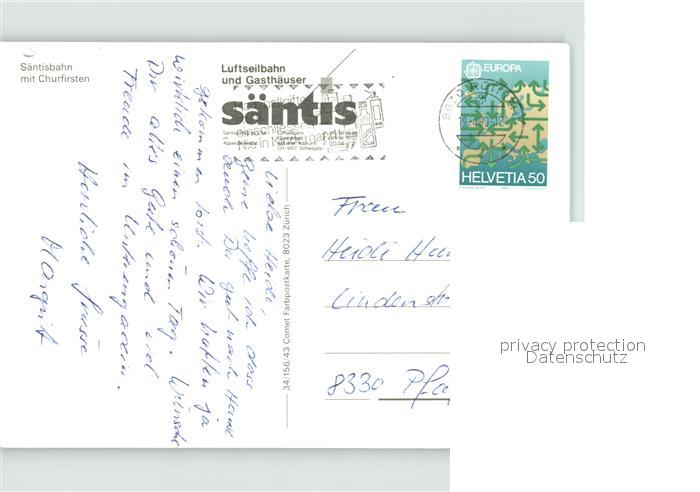 Säntisbahn
mit Churfirsten
Luftseilbahn
und Gasthäuser
säntis
EUROPA
HELVETIA 50
34/156/43 Comet Farbpostkarte, 8023 Zürich
Liebe Heidi,
Gerne hoffe ich dass
auch Du gut nach Hause
gekommen bist. Wir hatten ja
wirklich einen schönen Tag. Wünsche
Dir alles Gute und viel
Freude im Unterengadin.
Herzliche Grüsse
Margrit
Frau
Heidi
Lindenstr
8330 Pfä
privacy protection
Datenschutz